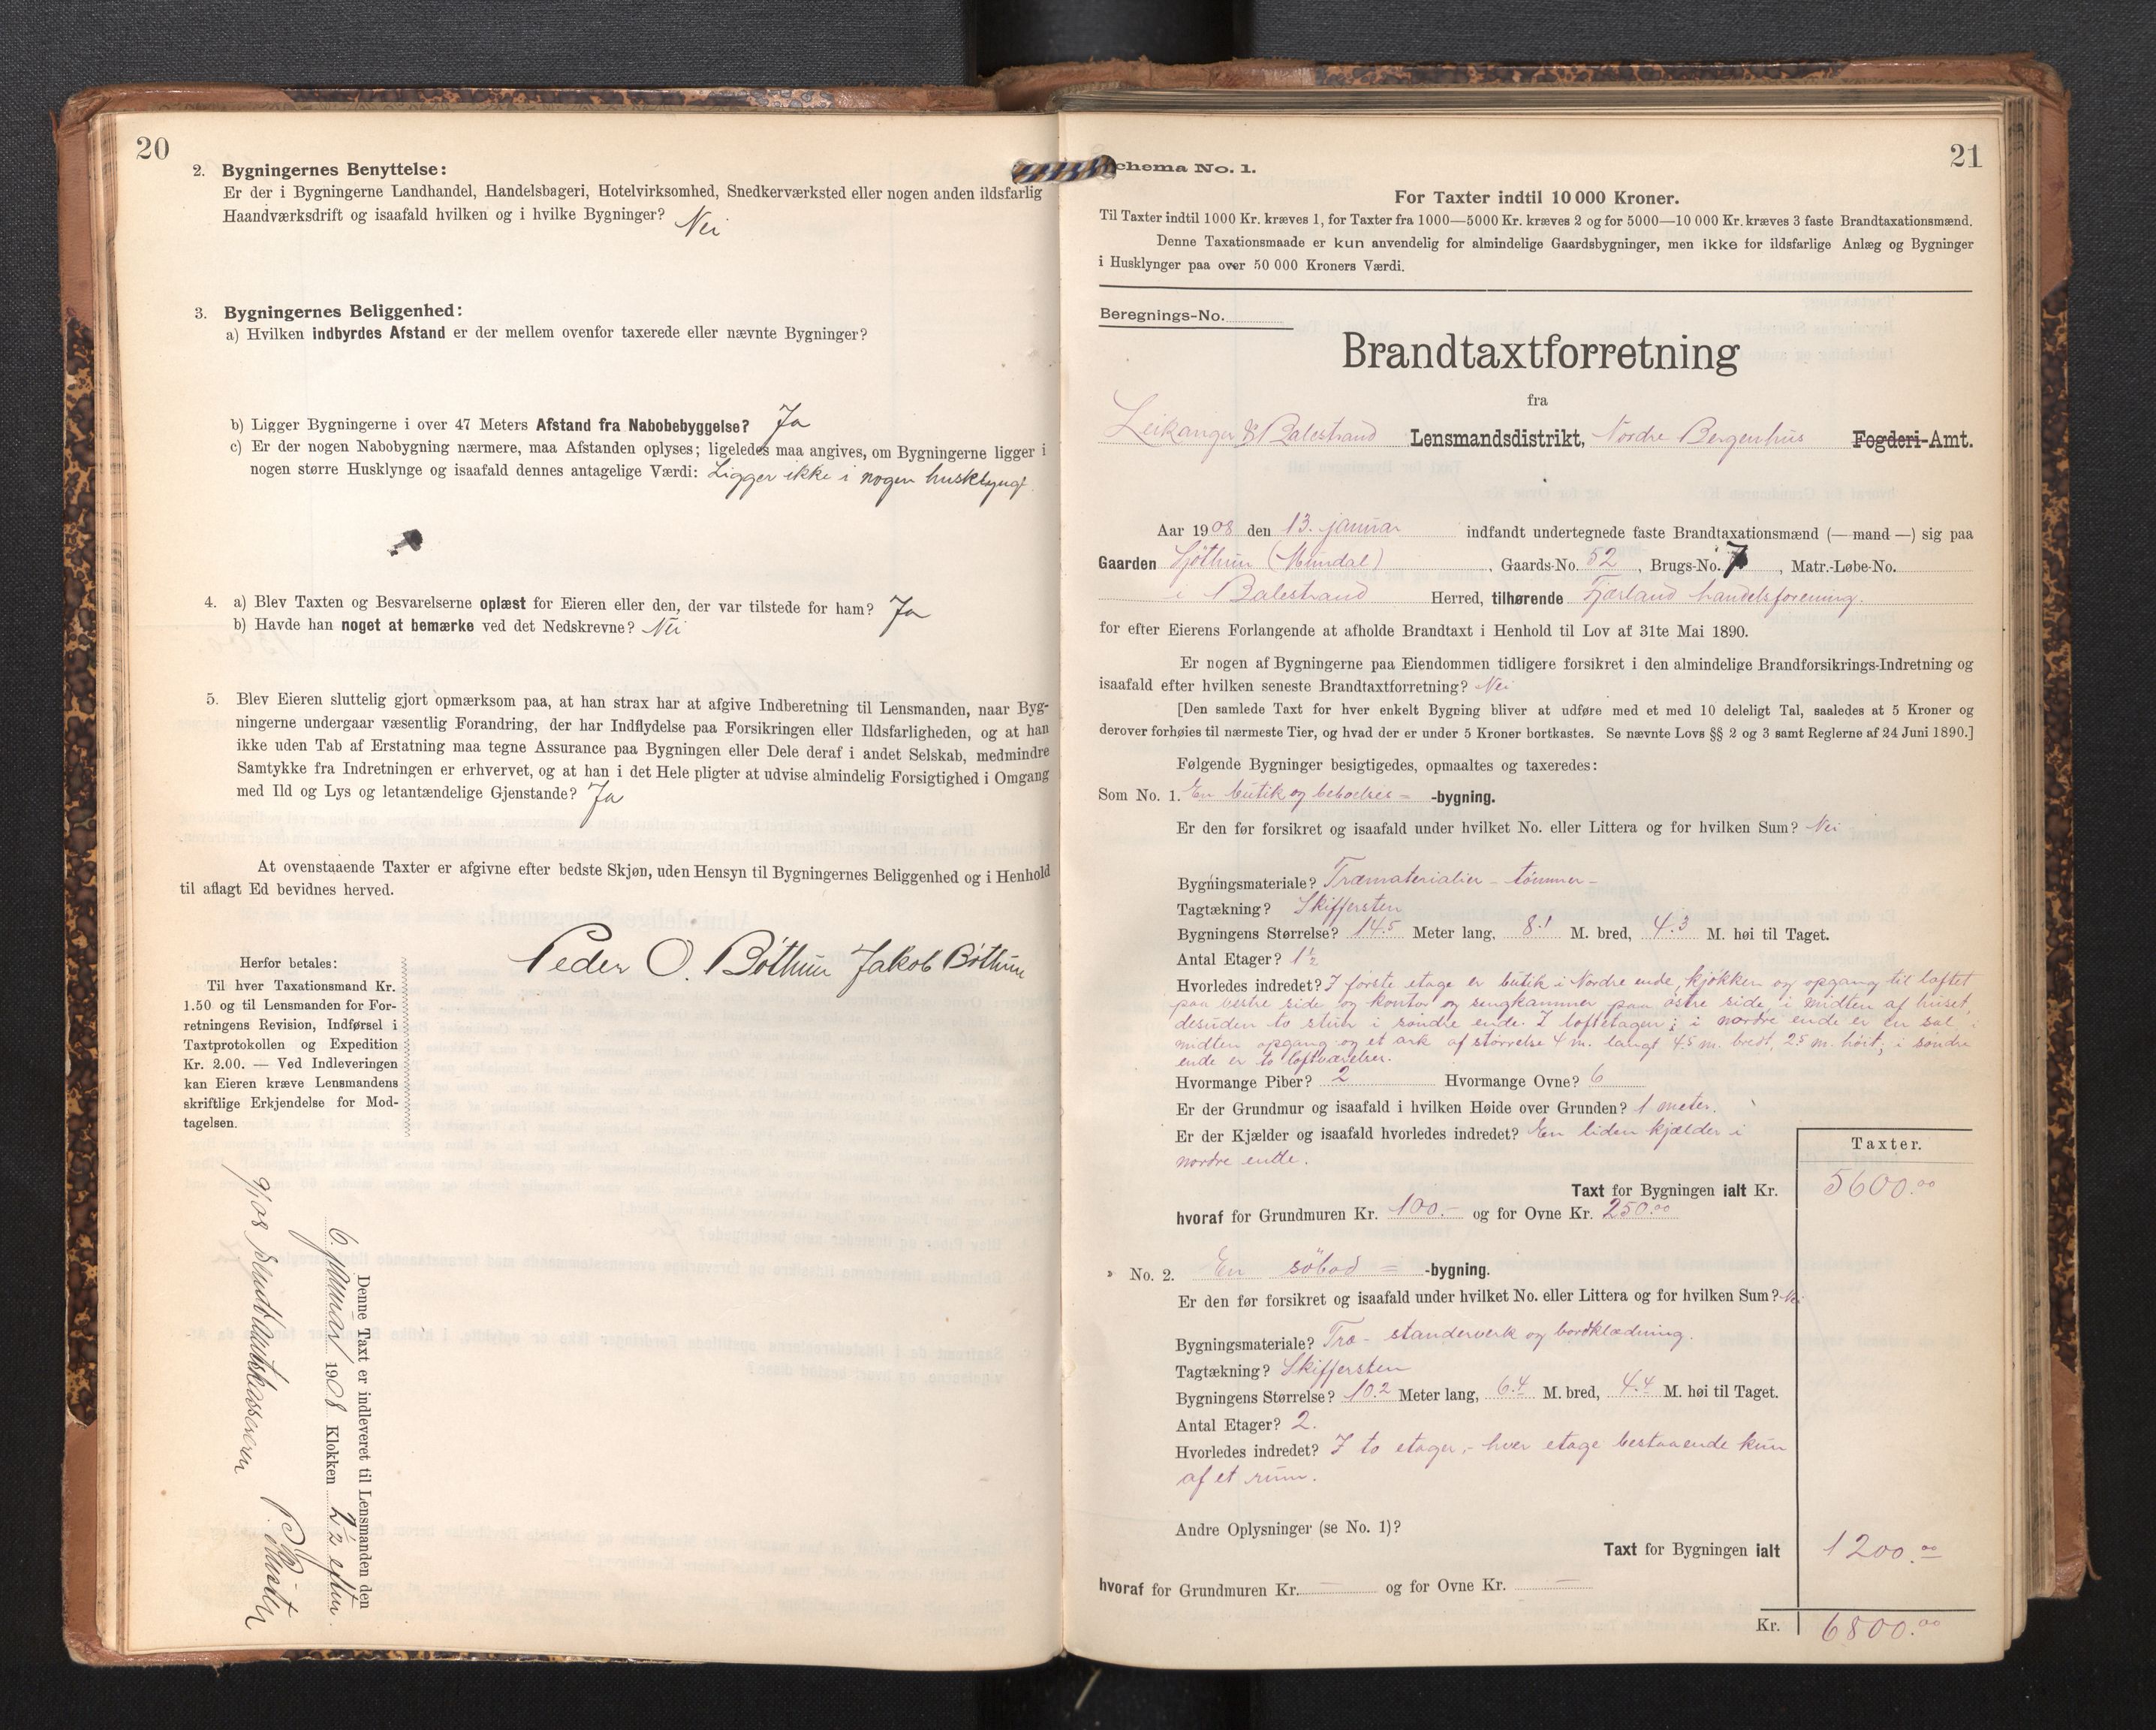 20
2. Bygningernes Benyttelse:
Er der i Bygningerne Landhandel, Handelsbageri, Hotelvirksomhed, Snedkerværksted eller nogen anden ildsfarlig
Haandværksdrift og isaafald hvilken og i hvilke Bygninger? Nei
3. Bygningernes Beliggenhed:
a) Hvilken indbyrdes Afstand er der mellem ovenfor taxerede eller nævnte Bygninger?
b) Ligger Bygningerne i over 47 Meters Afstand fra Nabobebyggelse? Ja
c) Er der nogen Nabobygning nærmere, maa Afstanden oplyses; ligeledes maa angives, om Bygningerne ligger i
nogen større Husklynge og isaafald dennes antagelige Værdi: Ligger ikke i nogen husklynge
4. a) Blev Taxten og Besvarelserne oplæst for Eieren eller den, der var tilstede for ham? Ja
b) Havde han noget at bemærke ved det Nedskrevne? Nei
5. Blev Eieren sluttelig gjort opmærksom paa, at han strax har at afgive Indberetning til Lensmanden, naar Byg-
ningerne undergaar væsentlig Forandring, der har Indflydelse paa Forsikringen eller Ildsfarligheden, og at han
ikke uden Tab af Erstatning maa tegne Assurance paa Bygningen eller Dele deraf i andet Selskab, medmindre
Samtykke fra Indretningen er erhvervet, og at han i det Hele pligter at udvise almindelig Forsigtighed i Omgang
med Ild og Lys og letantændelige Gjenstande? Ja
At ovenstaaende Taxter er afgivne efter bedste Skjøn, uden Hensyn til Bygningernes Beliggenhed og i Henhold
til aflagt Ed bevidnes herved.
Peder O. Bøthun Jakob Bøthun
Herfor betales:
Til hver Taxationsmand Kr.
1.50 og til Lensmanden for For-
retningens Revision, Indførsel i
Taxtprotokollen og Expedition
Kr. 2.00. — Ved Indleveringen
kan Eieren kræve Lensmandens
skriftlige Erkjendelse for Mod-
tagelsen.
Denne Taxt er indleveret til Lensmanden den
6. januar 1908 Klokken 2 1/2 efterm.
9/1 08
21
Schema No. 1.
For Taxter indtil 10 000 Kroner.
Til Taxter indtil 1000 Kr. kræves 1, for Taxter fra 1000—5000 Kr. kræves 2 og for 5000—10 000 Kr. kræves 3 faste Brandtaxationsmænd.
Denne Taxationsmaade er kun anvendelig for almindelige Gaardsbygninger, men ikke for ildsfarlige Anlæg og Bygninger
i Husklynger paa over 50 000 Kroners Værdi.
Beregnings-No.
Brandtaxtforretning
fra
Leikanger & Balestrand Lensmandsdistrikt, Nordre Bergenhus Fogderi-Amt.
Aar 1908 den 13. januar indfandt undertegnede faste Brandtaxationsmænd (— mand —) sig paa
Gaarden Sjøthun (Mundal), Gaards-No. 52, Brugs-No. 7, Matr.-Løbe-No.
i Balestrand Herred, tilhørende Fjærland handelsforening.
for efter Eierens Forlangende at afholde Brandtaxt i Henhold til Lov af 31te Mai 1890.
Er nogen af Bygningerne paa Eiendommen tidligere forsikret i den almindelige Brandforsikrings-Indretning og
isaafald efter hvilken seneste Brandtaxtforretning? Nei
[Den samlede Taxt for hver enkelt Bygning bliver at udføre med et med 10 deleligt Tal, saaledes at 5 Kroner og
derover forhøies til nærmeste Tier, og hvad der er under 5 Kroner bortkastes. Se nævnte Lovs §§ 2 og 3 samt Reglerne af 24 Juni 1890.]
Følgende Bygninger besigtigedes, opmaaltes og taxeredes:
Som No. 1. En butik og beboelses= -bygning.
Er den før forsikret og isaafald under hvilket No. eller Littera og for hvilken Sum? Nei
Bygningsmateriale? Træmaterialier - tømmer-
Tagtækning? Skiffersten
Bygningens Størrelse? 14.5 Meter lang, 8.1 M. bred, 4.3 M. høi til Taget.
Antal Etager? 1 1/2
Hvorledes indredet? I første etage er butik i Nordre ende, kjøkken og opgang til loftet
paa vestre side og kontor og sengkammer paa østre side i midten af huset,
desuden to stuer i søndre ende. I loftetagen; i nordre ende er en sal i
midten opgang og et ark af størrelse 4 m. langt 4.5 m. bredt, 2.5 m. høit; i søndre
ende er to loftværelser.
Hvormange Piber? 2 Hvormange Ovne? 6
Er der Grundmur og isaafald i hvilken Høide over Grunden? 1 meter.
Er der Kjælder og isaafald hvorledes indredet? En liden kjælder i
nordre ende.
Taxter.
Taxt for Bygningen ialt Kr. 5600.00
hvoraf for Grundmuren Kr. 100.- og for Ovne Kr. 250.00
» No. 2. En søbod = -bygning.
Er den før forsikret og isaafald under hvilket No. eller Littera og for hvilken Sum? Nei
Bygningsmateriale? Træ- standerverk og bordklædning.
Tagtækning? Skiffersten
Bygningens Størrelse? 10.2 Meter lang, 6.4 M. bred, 4.4 M. høi til Taget.
Antal Etager? 2.
Hvorledes indredet? I to etager,- hver etage bestaaende kun
af et rum.
Andre Oplysninger (se No. 1)?
Taxt for Bygningen ialt 1200.00
hvoraf for Grundmuren Kr. — og for Ovne Kr. —
Kr. 6800.00